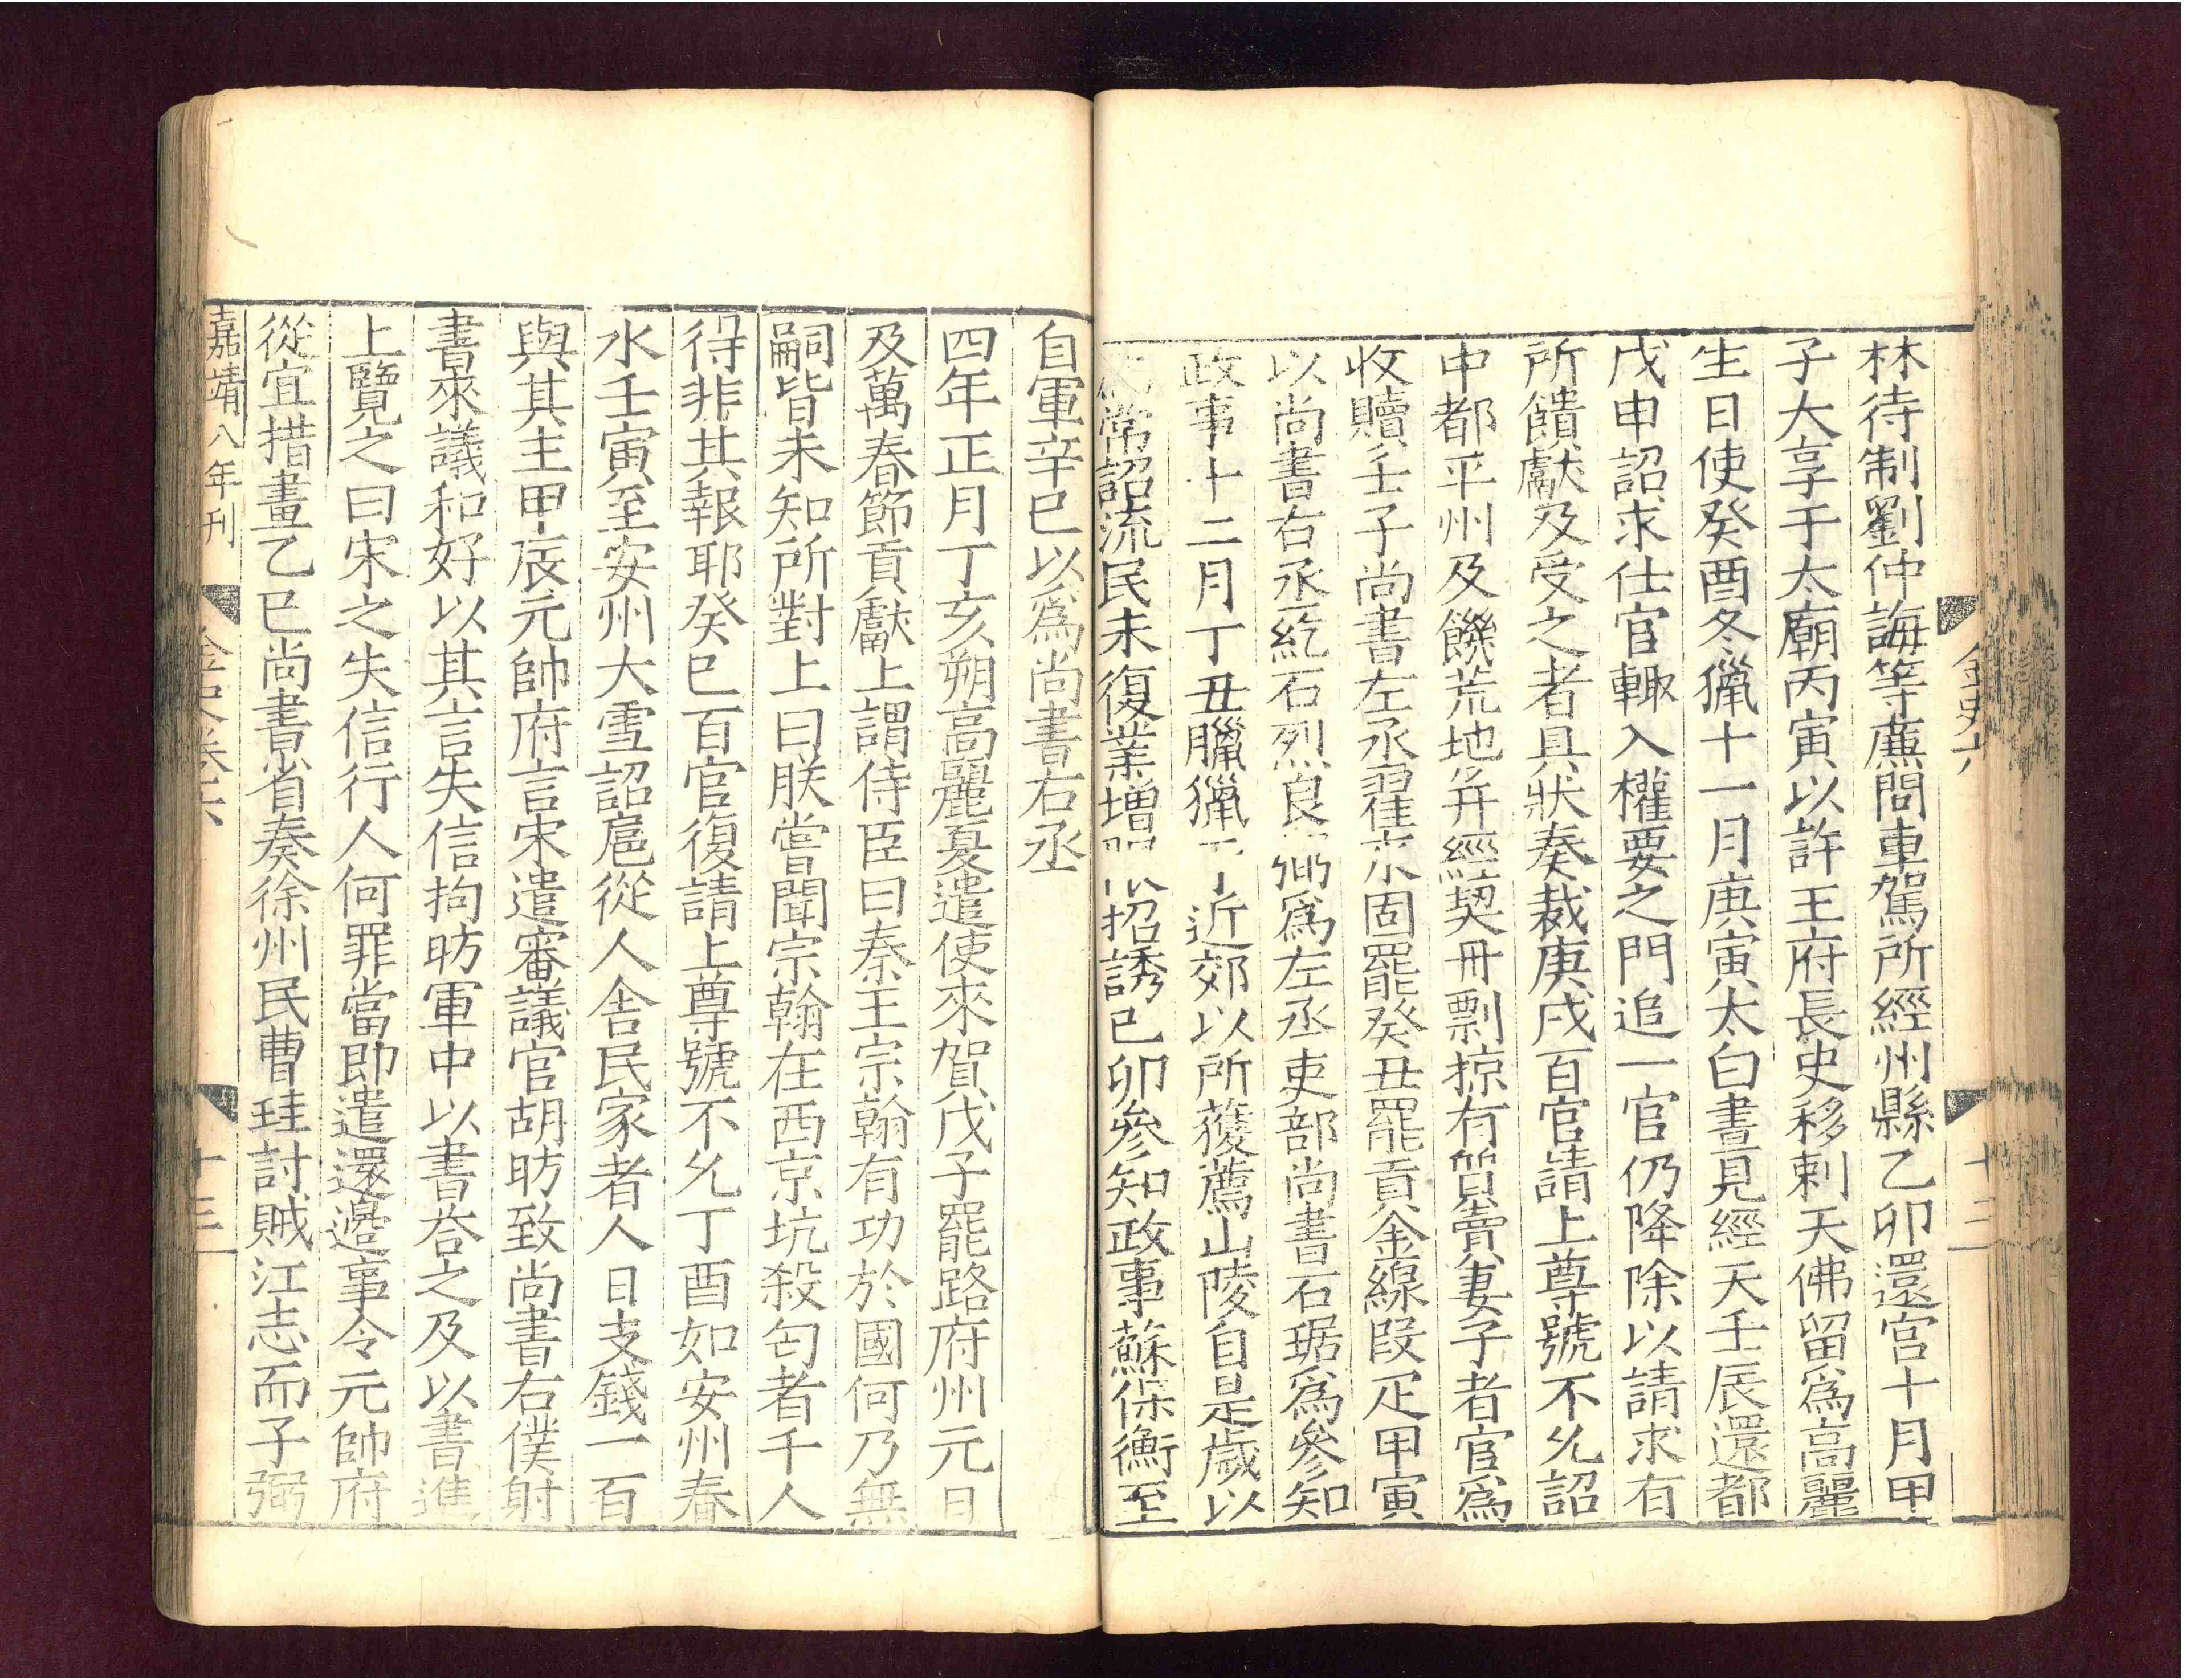 金史六
十二
林待制劉仲誨等廉問車駕所經州縣乙卯還宮十月甲
子大享于太廟丙寅以許王府長史移剌天佛留爲高麗
生日使癸酉冬獵十一月庚寅太白晝見經天壬辰還都
戊申詔求仕官輙入權要之門追一官仍降除以請求有
所饋獻及受之者具狀奏裁庚戌百官請上尊號不允詔
中都平州及饑荒地并經契丹剽掠有質賣妻子者官爲
收贖壬子尚書左丞翟永固罷癸丑罷貢金線段疋甲寅
以尚書右丞紇石烈良弼爲左丞吏部尚書石琚爲參知
政事十二月丁丑臘獵于近郊以所獲薦山陵自是歲以
爲常詔流民未復業增限招誘己卯參知政事蘇保衡至
自軍辛巳以爲尚書右丞
四年正月丁亥朔高麗夏遣使來賀戊子罷路府州元日
及萬春節貢獻上謂侍臣曰秦王宗翰有功於國何乃無
嗣皆未知所對上曰朕嘗聞宗翰在西京坑殺匄者千人
得非其報耶癸巳百官復請上尊號不允丁酉如安州春
水壬寅至安州大雪詔扈從人舍民家者人日支錢一百
與其主甲辰元帥府言宋遣審議官胡昉致尚書右僕射
書來議和好以其言失信拘昉軍中以書荅之及以書進
上覽之曰宋之失信行人何罪當即遣還邊事令元帥府
從宜措畫乙巳尚書省奏徐州民曹珪討賊江志而子弼
嘉靖八年刊
金史卷六
十三